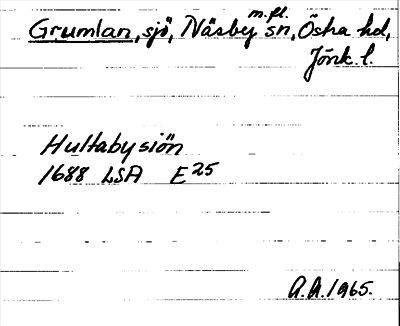 Grumlan, sjö, Näsby m.fl. sn, Östra hd,
Jönk. l.
Hultabysiön
1688 LSA E25
A.A. 1965.